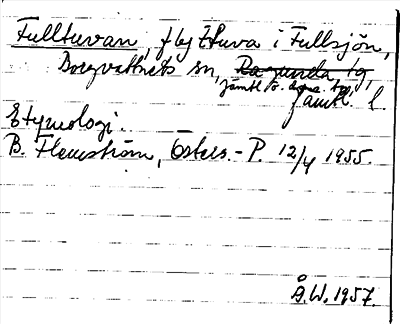 Fulltuvan, flyttuva i Fullsjön,
Borgvattnets sn, Ragunda tg,
Jämtl. ö. doms. tg.
Jämtl. l.
Etymologi.
B. Flemström, Östers.-P. 12/4 1955.
Å.W. 1957.